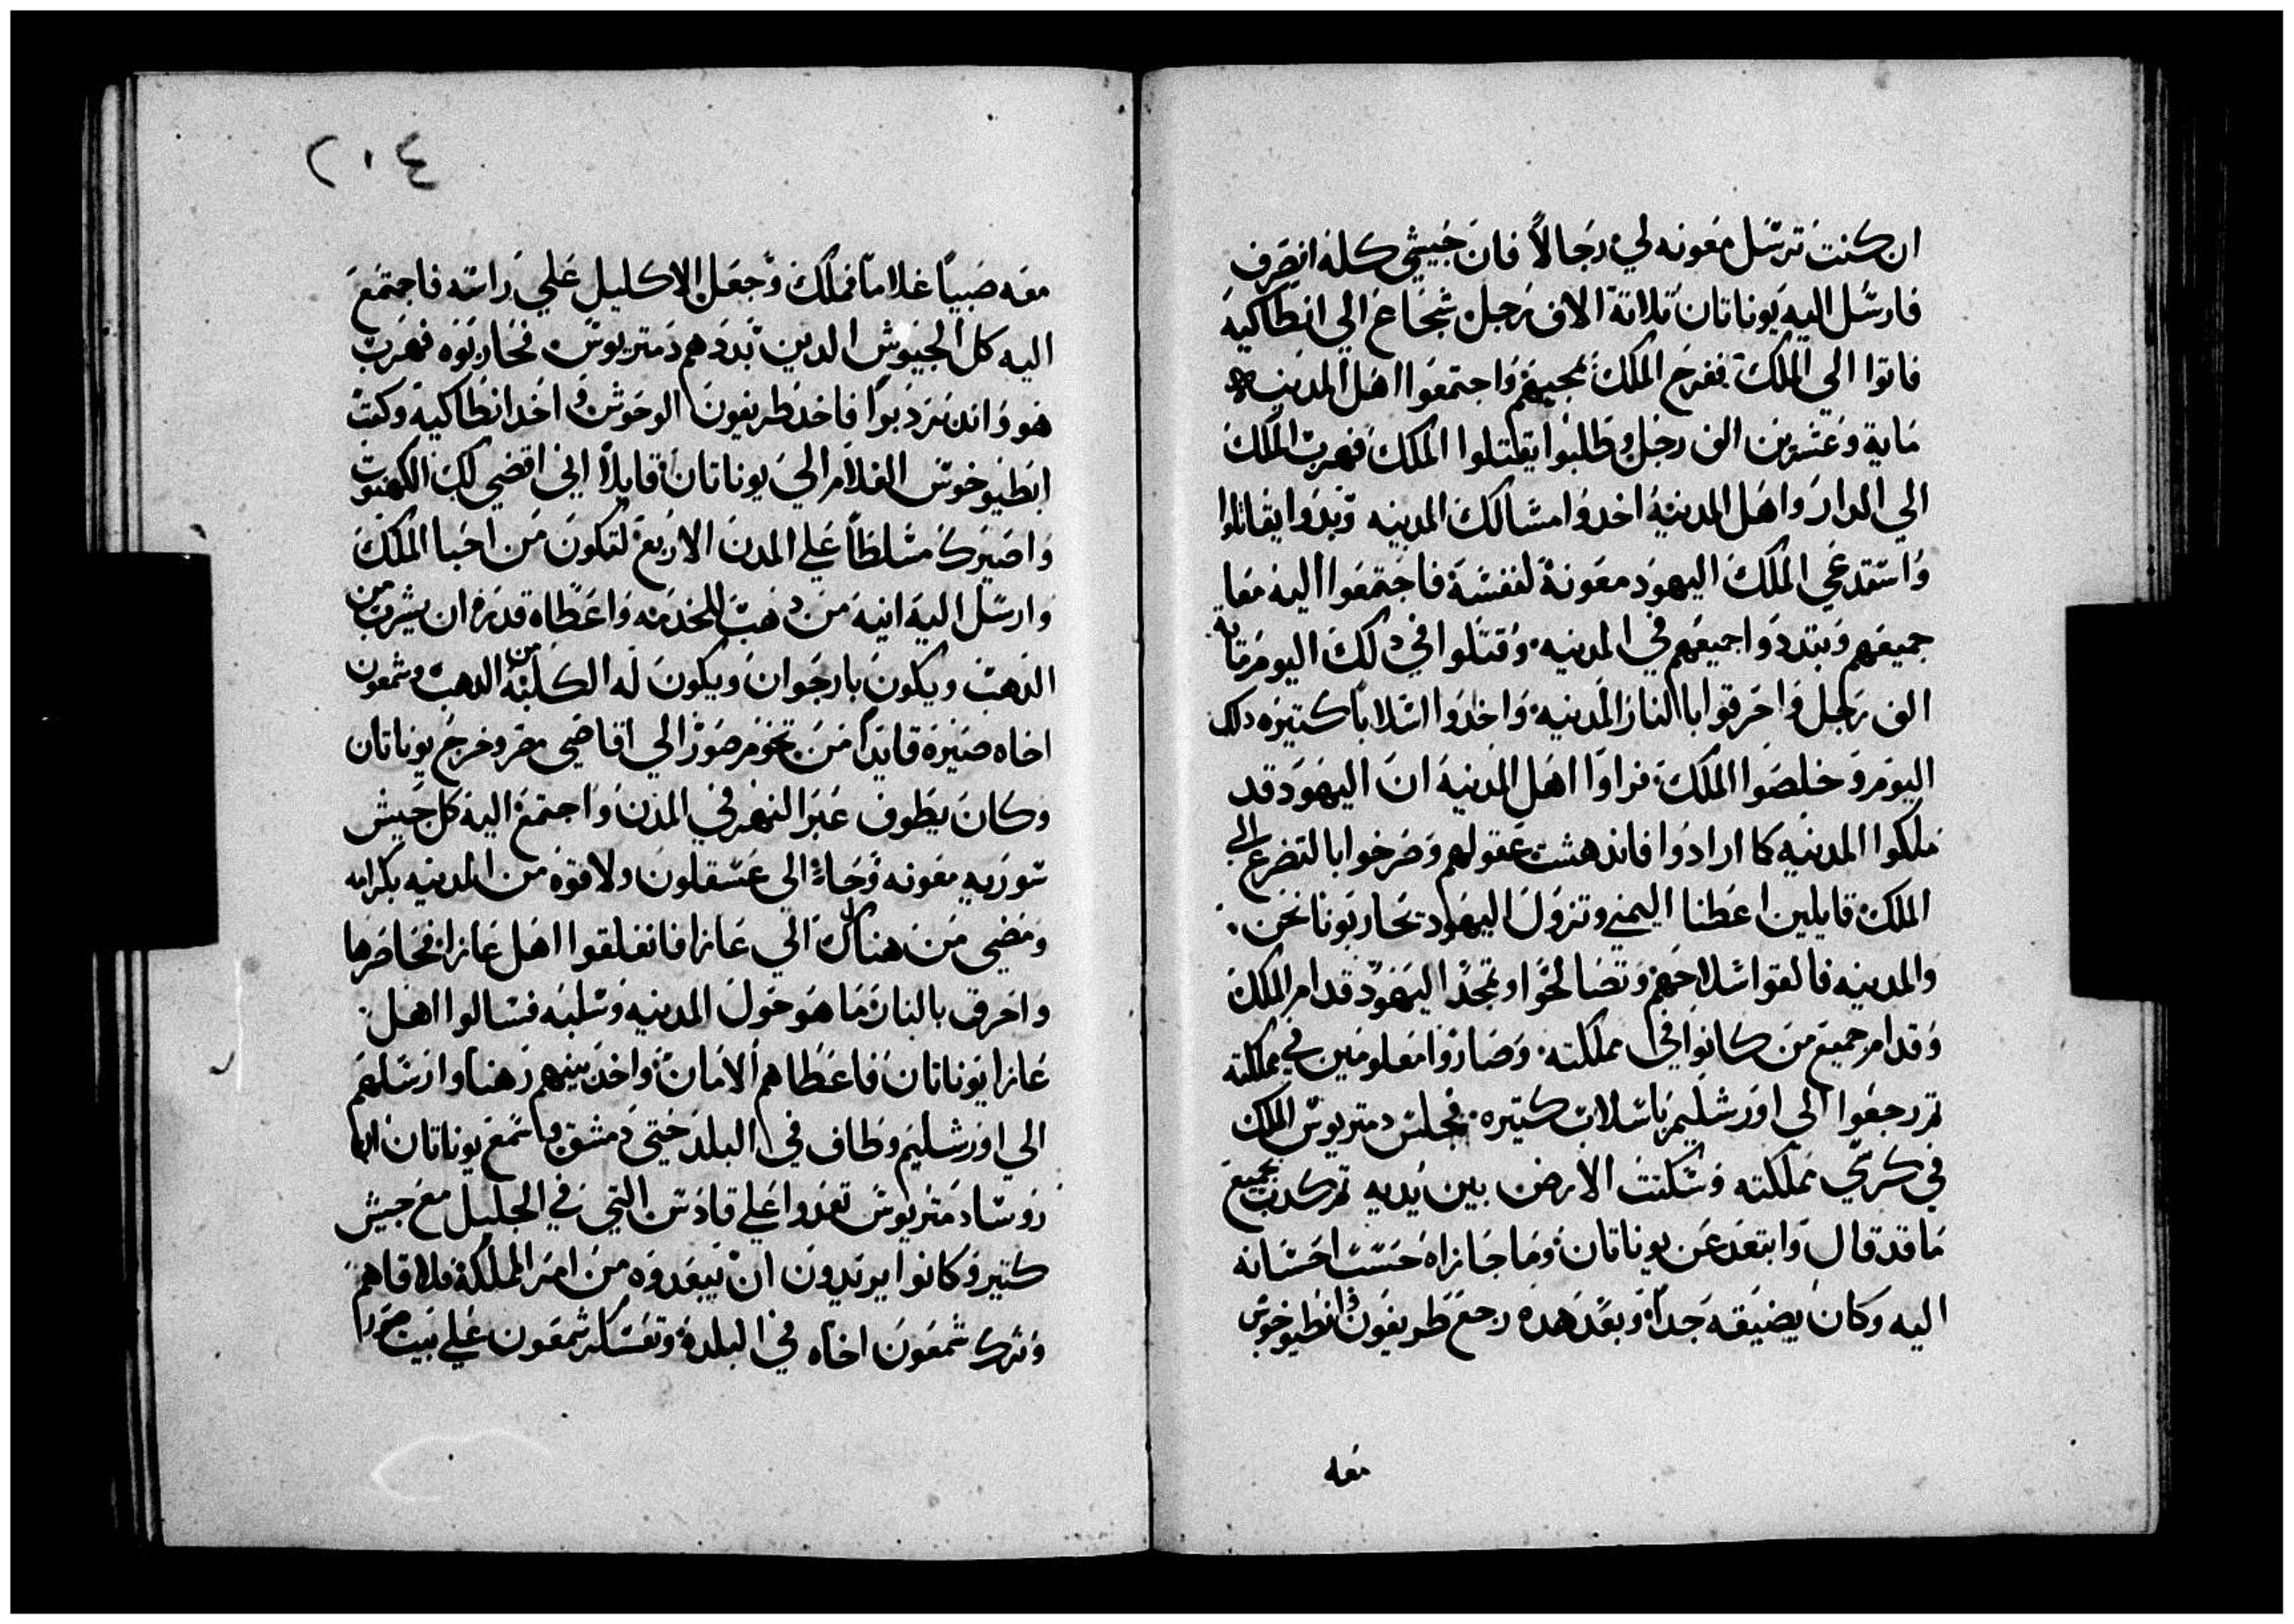 ان كنت ترسل معونه لي رجالاً فان جيشي كله انصرف
فارسل اليه يوناتان تلاتة الاف رجل شجاع الي انطاكيه
فاتوا الي الملك ففرح الملك بمجيهم واجتمعوا اهل المدينه
ماية وعشرين الف رجل وطلبوا يقتلوا الملك فهرب الملك
الي الدار واهل المدينة اخدوا مسالك المدينه وبدوا يقاتلوا
واستدعي الملك اليهود معونة لنفسه فاجتمعوا اليه معا
جميعهم وتبددوا جميعهم في المدينه وقتلوا في دلك اليوم مايه
الف رجل واحرقوا بالنار المدينه واخدوا اسلاباً كتيره دلك
اليوم وخلصوا الملك فراوا اهل المدينة ان اليهود قد
ملكوا المدينه كما ارادوا فاندهشت عقولهم وصرخوا بالتضرع الي
الملك قايلين اعطنا اليمني وتزول اليهود تحاربونا نحن
والمدينه فالقوا سلاحهم وتصالحوا وتمجد اليهود قدام الملك
وقدام جميع من كانوا في مملكته وصاروا معلومين في مملكته
تم رجعوا الي اورشليم باسلاب كتيره فجلس دمتريوس الملك
في كرسي مملكته وسكنت الارض بين يديه تم كدب بجميع
ما قد قال وابتعد عن يوناتان وما جازاه حسب احسانه
اليه وكان يضيقه جداً وبعد هده رجع طريفون وانطيوخوس
معه
٢٠٤
معه صبياً غلاماً فملك وجعل الاكليل علي راسه فاجتمع
اليه كل الجيوش الدين بددهم دمتريوس فحاربوه فهرب
هو واندردبوا فاخد طريفون الوحوش واخد انطاكية وكتب
انطيوخوس الغلام الي يوناتان قايلاً اني اقضي لك الكهنوت
واصيرك مسلطاً علي المدن الاربع لتكون من احبا الملك
وارسل اليه انيه من دهب للخدمه واعطاه قدره ان يشرب من
الدهب ويكون بارجوان ويكون له الكلبة من الدهب وشمعون
اخاه صيره قايداً من تخوم صور الي اقاصي مصر وخرج يوناتان
وكان يطوف عبر النهر في المدن واجتمع اليه كل جيش
سوريه معونه وجاء الي عسقلون ولاقوه من المدينه بكرامه
ومضي من هناك الي غازا فانغلقوا اهل غازا فحاصرها
واحرق بالنار ما هو حول المدينه وسلبه فسالوا اهل
غازا يوناتان فاعطاهم الامان واخد بنيهم رهنا وارسلهم
الي اورشليم وطاف في البلد حتي دمشق وسمع يوناتان ان
روسا دمتريوس تعدوا علي قادس التي في الجليل مع جيش
كتير وكانوا يريدون ان يبعدوه من امر المملكة فلاقاهم
وترك شمعون اخاه في البلدة وتعسكر شمعون علي بيت صورا